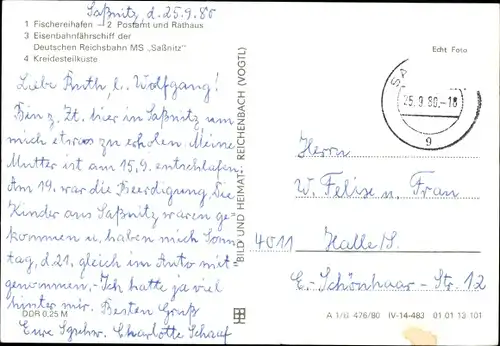 Saßnitz, d. 25.9.80
1 Fischereihafen – 2 Postamt und Rathaus
3 Eisenbahnfährschiff der
Deutschen Reichsbahn MS „Saßnitz"
4 Kreidesteilküste
Echt Foto
Liebe Ruth, l. Wolfgang!
Bin z. Zt. hier in Saßnitz um
mich etwas zu erholen. Meine
Mutter ist am 15.9. entschlafen.
Am 19. war die Beerdigung. Die
Kinder aus Saßnitz waren ge-
kommen u. haben mich Sonn
tag, d. 21. gleich im Auto mit-
genommen, - Ich hatte ja viel
hinter mir. Besten Gruß
Eure Charlotte
DDR 0,25 M
BILD UND HEIMAT · REICHENBACH (VOGTL)
SA
25.9.80.-18
9
Herrn
W. Felise u. Frau
4011 Halle/S.
E.-Schönhaar-Str. 12
A 1/B 476/80 IV-14-483 01 01 13 101